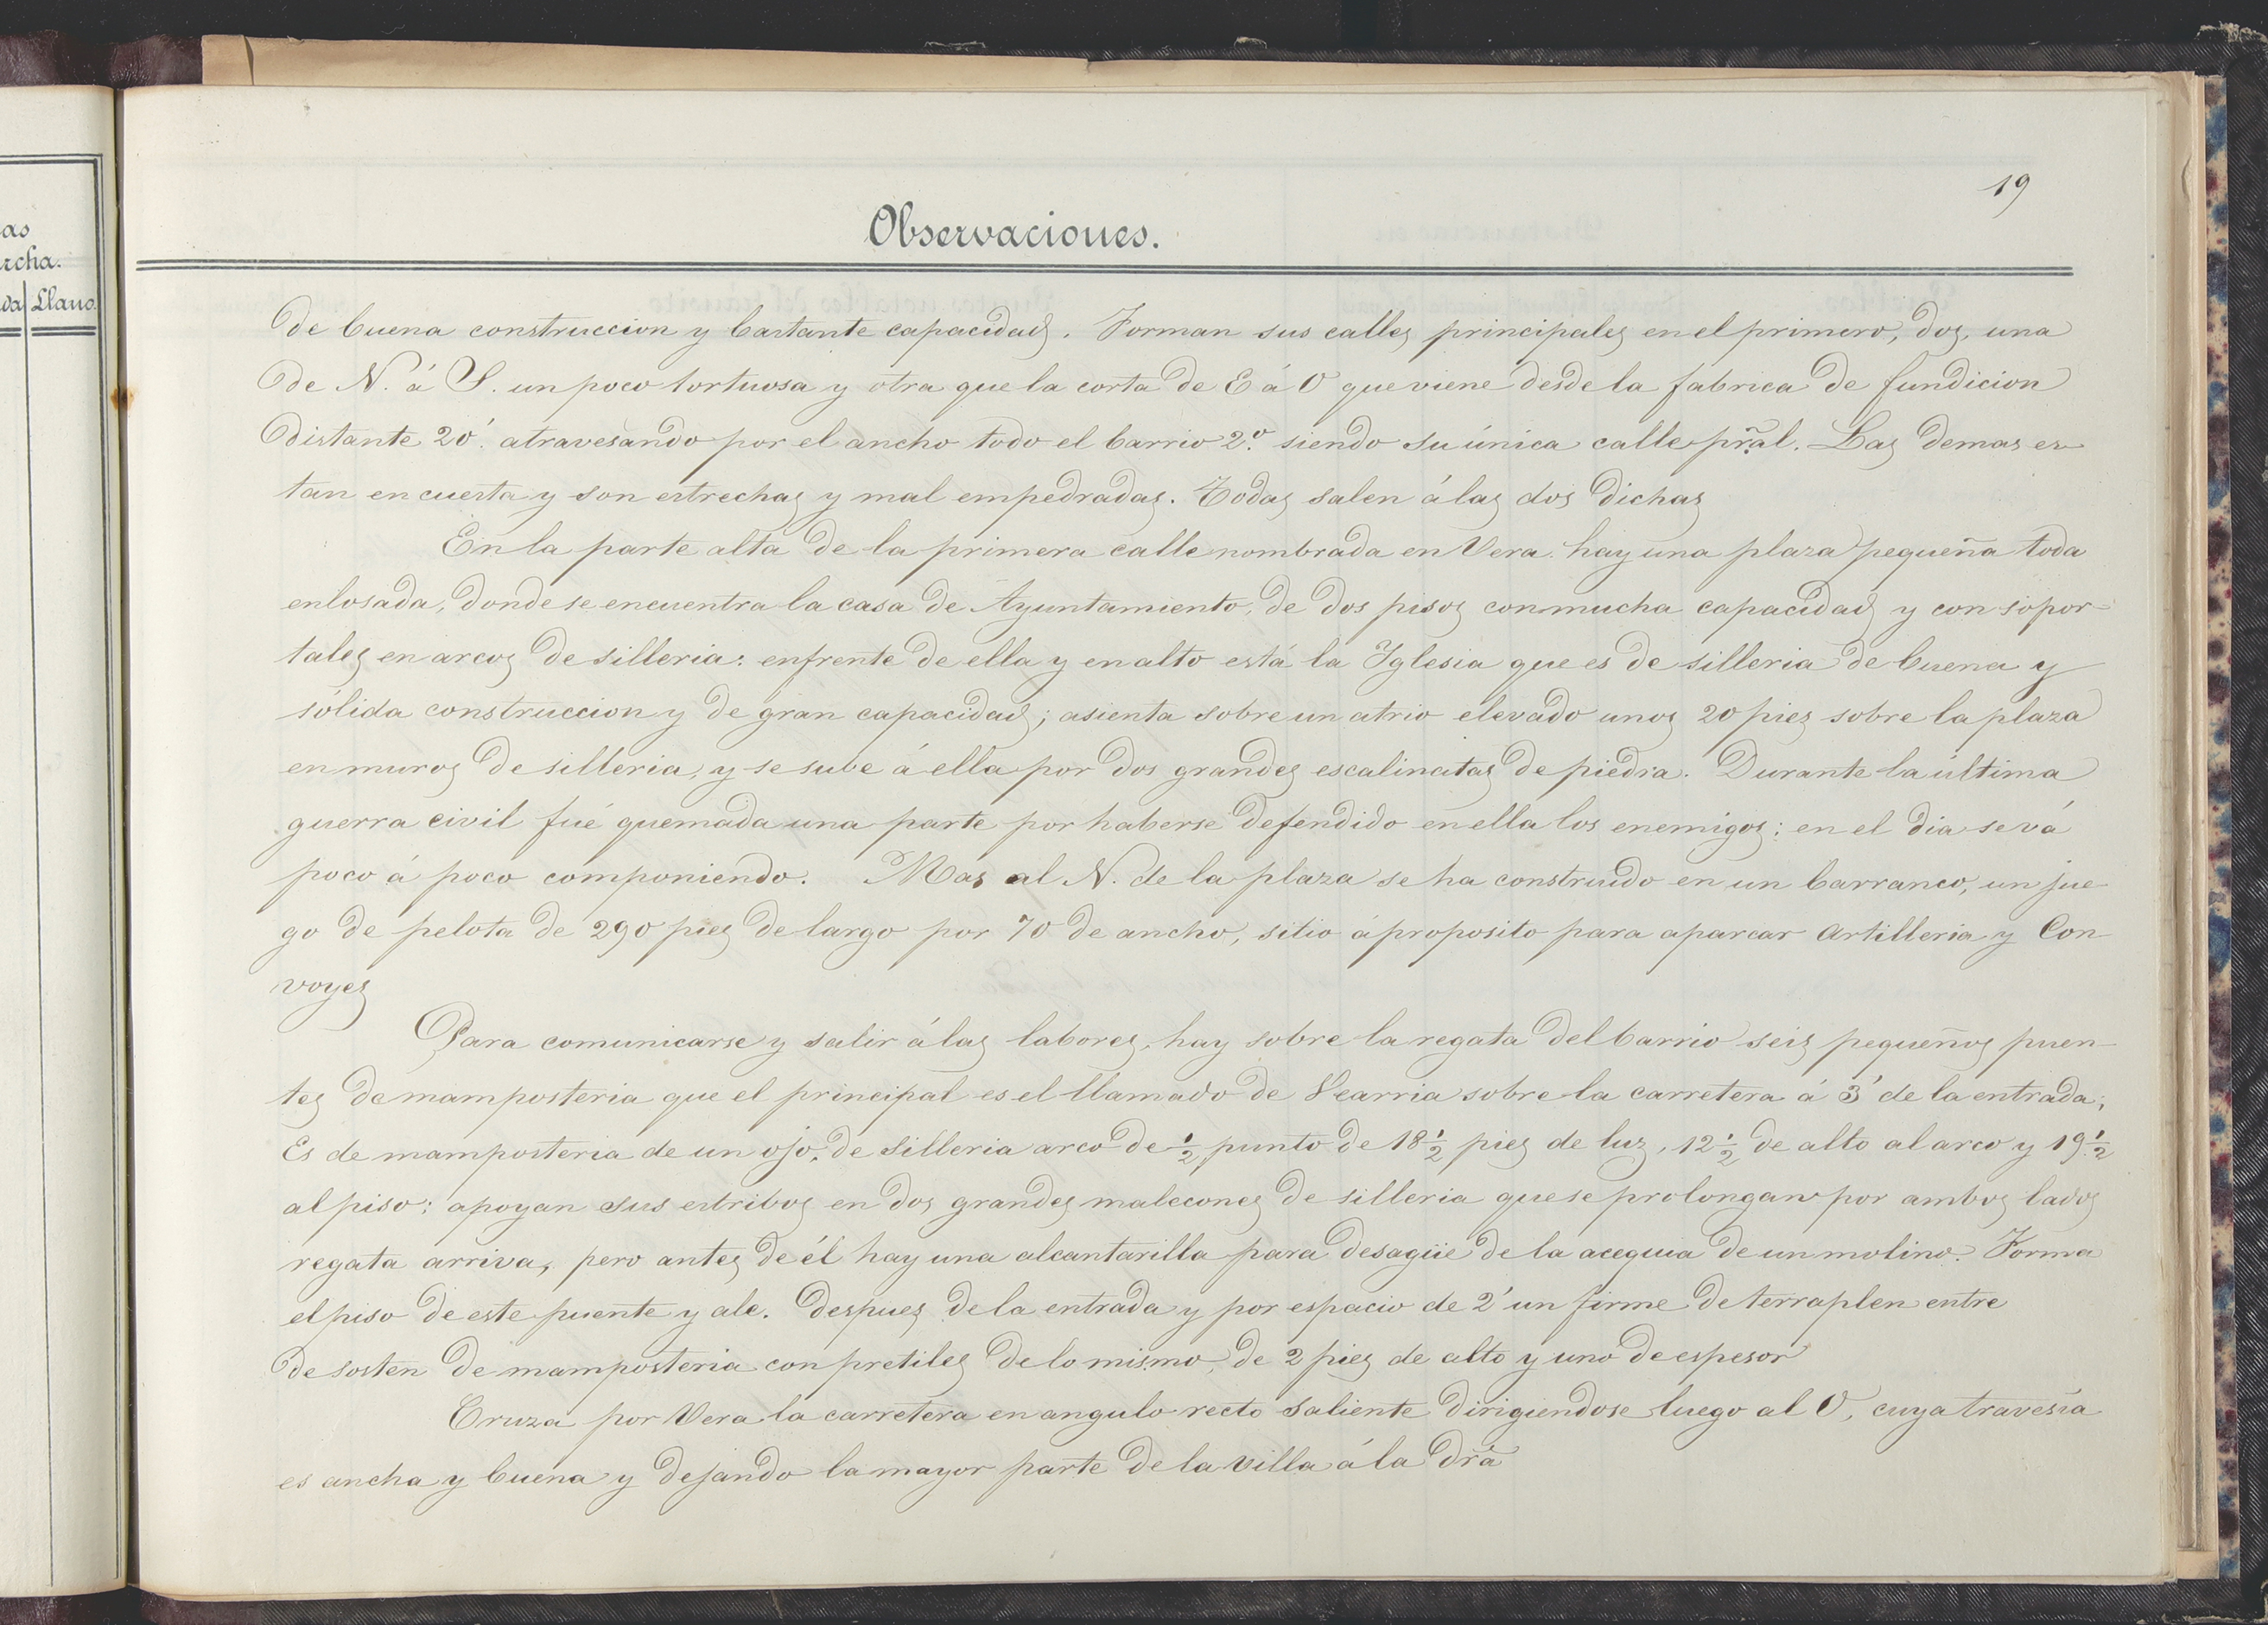 as
rcha.
da Llano.
19
Observaciones.
de buena construccion y bastante capacidad. Forman sus calles principales en el primero, dos, una
de N. á S. un poco tortuosa y otra que la corta de E á O que viene desde la fabrica de fundicion
distante 20'. atravesando por el ancho todo el barrio 2.º siendo su única calle prãl. Las demas es
tan en cuesta y son estrechas y mal empedradas. Todas salen á las dos dichas
En la parte alta de la primera calle nombrada en Vera hay una plaza pequeña toda
enlosada, donde se encuentra la casa de Ayuntamiento, de dos pisos con mucha capacidad y con sopor-
tales en arcos de silleria: enfrente de ella y en alto está la Iglesia que es de silleria de buena y
sólida construccion y de gran capacidad; asienta sobre un atrio elevado unos 20 pies sobre la plaza
en muros de silleria, y se sube á ella por dos grandes escalinatas de piedra. Durante la última
guerra civil fué quemada una parte por haberse defendido en ella los enemigos: en el dia se vá
poco á poco componiendo. Mas al N. de la plaza se ha construido en un barranco, un jue
go de pelota de 290 pies de largo por 70 de ancho, sitio á proposito para aparcar Artilleria y Con
voyes
Para comunicarse y salir á las labores, hay sobre la regata del barrio seis pequeños puen-
tes de mamposteria que el principal es el llamado de Vearria sobre la carretera á 3' de la entrada;
Es de mamposteria de un ojo, de silleria arco de ½ punto de 18 ½ pies de luz, 12 ½ de alto al arco y 19 ½
al piso: apoyan sus estribos en dos grandes malecones de silleria que se prolongan por ambos lados
regata arriva, pero antes de él hay una alcantarilla para desagüe de la acequia de un molino. Forma
el piso de este puente y alc. despues de la entrada y por espacio de 2' un firme de terraplen entre
de sosten de mamposteria con pretiles de lo mismo, de 2 pies de alto y uno de espesor
Cruza por Vera la carretera en angulo recto saliente dirigiendose luego al O, cuya travesía
es ancha y buena y dejando la mayor parte de la villa á la drã